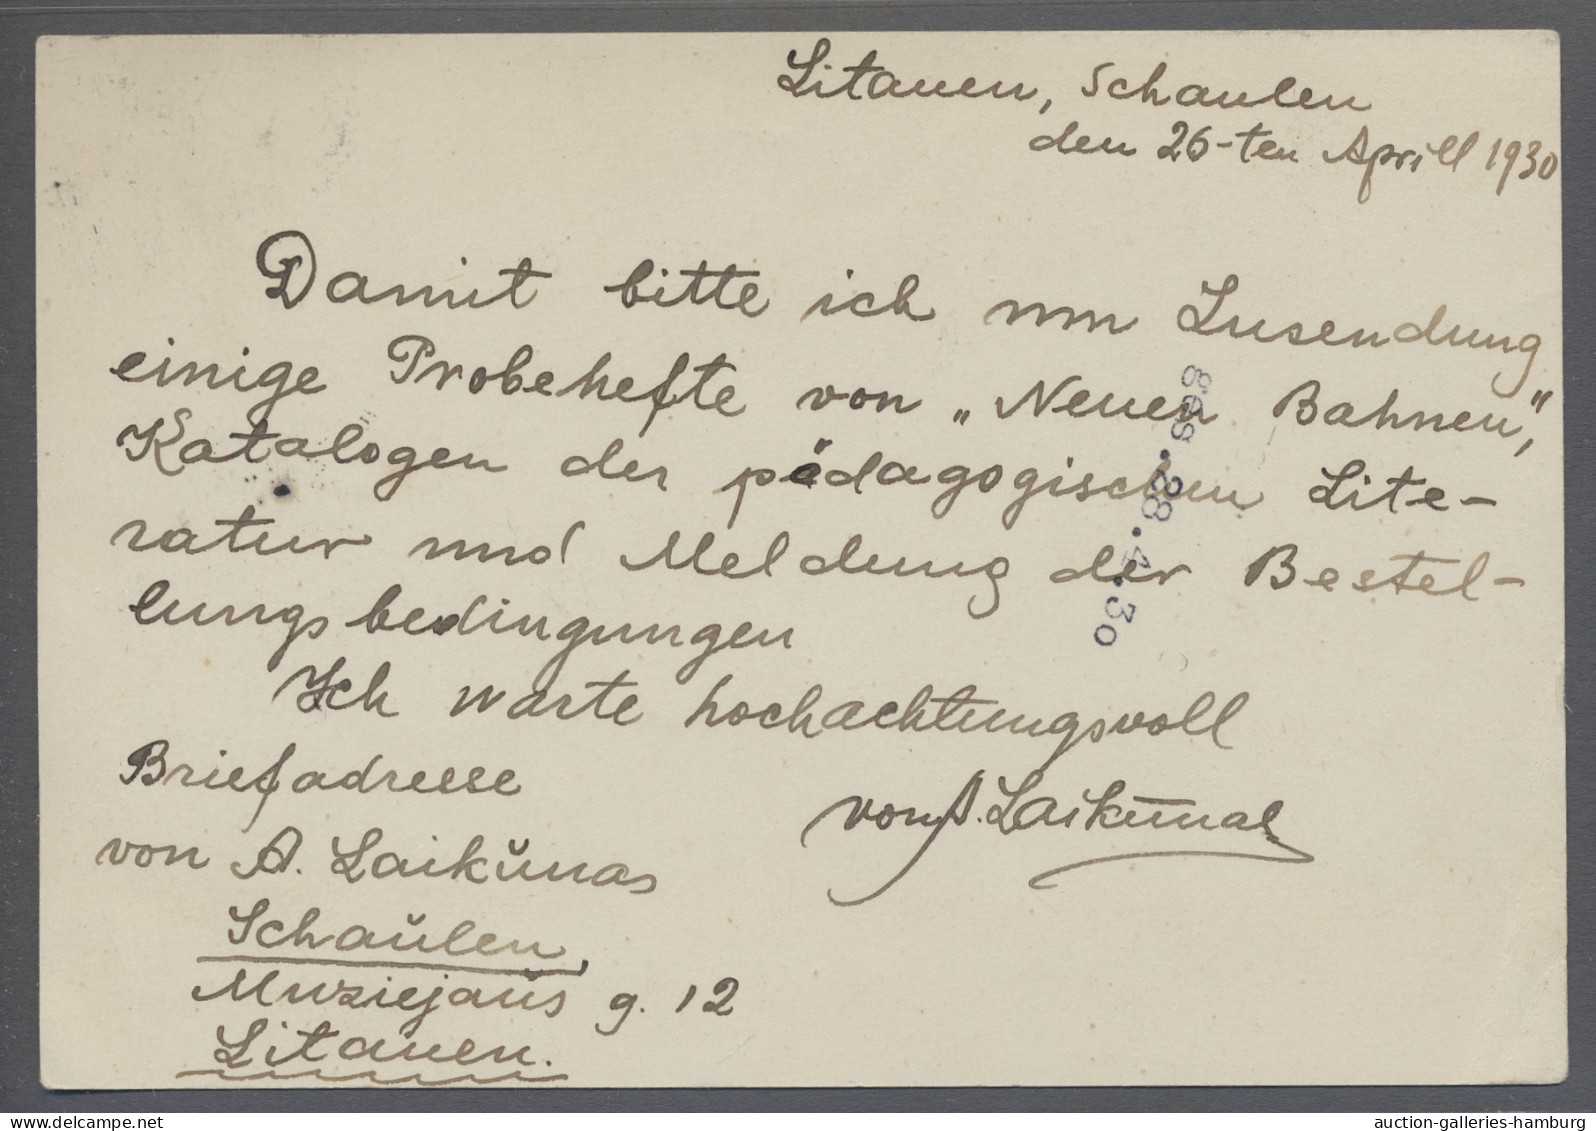 Litauen, Schaulen
den 26-ten Aprill 1930
Damit bitte ich um Zusendung
einige Probehefte von „Neuen Bahnen“,
Katalogen der pädagogischen Lite-
ratur und Meldung der Bestel-
lungsbedingungen
ges.28.4.30
Ich warte hochachtungsvoll
von A. Laikūnas
Briefadresse
von A. Laikŭnas
Schaŭlen,
Muziejaŭs g. 12
Litauen.
www.delcampe.net
auction-galleries-hamburg